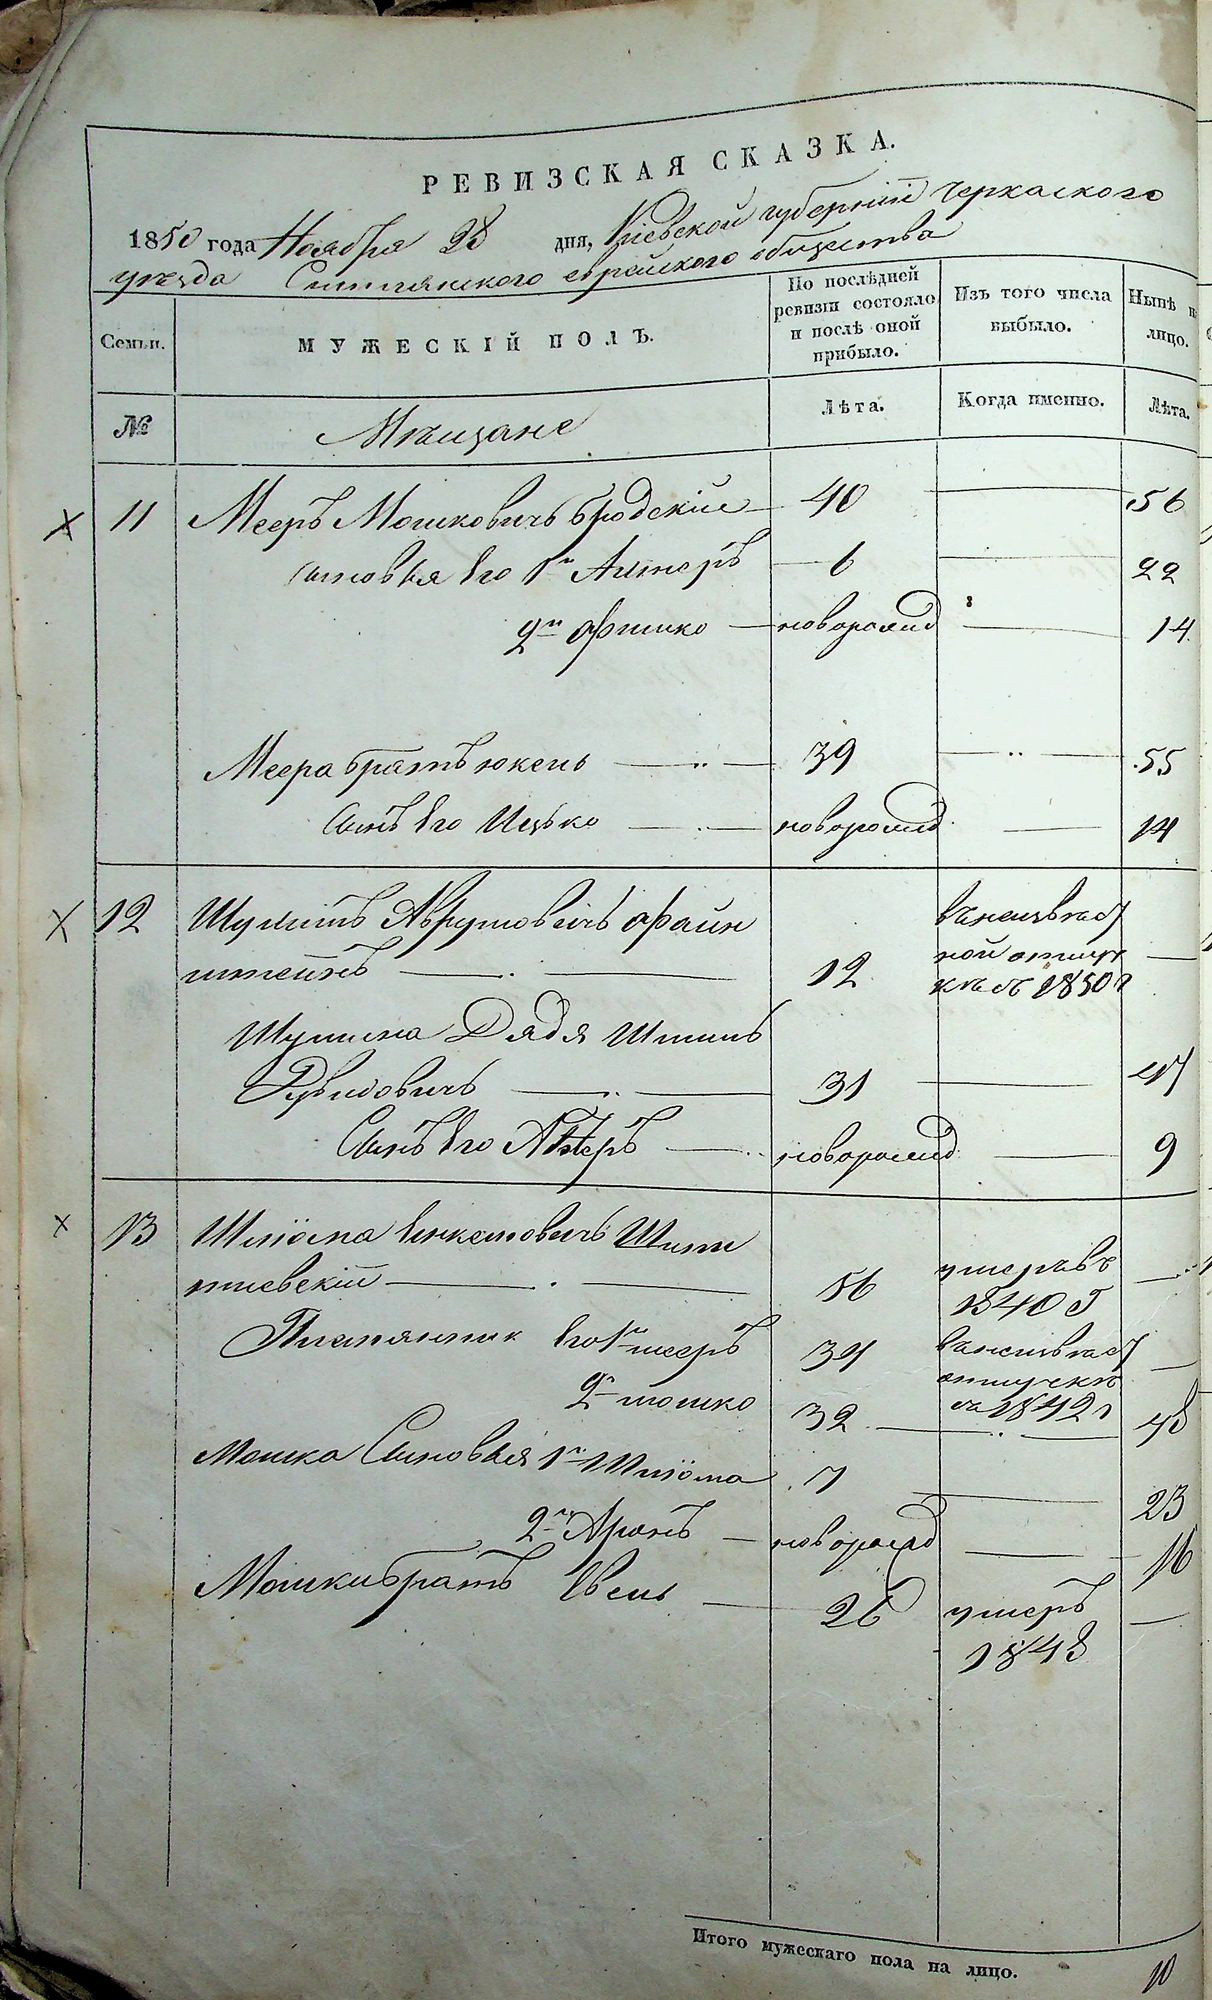 РЕВИЗСКАЯ СКАЗКА.
1850 года Ноября 28 дня, Кіевской губерніи Черкаского
уѣзда Смѣлянского еврейского общества
Семьи.
МУЖЕСКІЙ ПОЛЪ.
По послѣдней ревизіи состояло и послѣ оной прибыло.
Изъ того числа выбыло.
Нынѣ на лицо.
№
Мѣщане
Лѣта.
Когда именно.
Лѣта.
11 Мееръ Мошковичъ Бродскій 40 56
сыновья его 1й Алтеръ 6 22
2й новорожд 14
Меера братъ Юкель 39 55
Сынъ его Ицько новорожд 14
12 Шулимъ Аврумовичъ Файн
штейнъ 12 1850 г
Шулима Дядя
31 47
Сынъ его новорожд 9
13 Шліома Шпи
56 умеръ въ
1840 г
Племянник его 1й Мееръ 34
2й Мошко 32 1842 г 48
Мошка Сыновья 1й Шліома 7 23
2й Аронъ новорожд 16
Мошки братъ 26 умеръ
1848
Итого мужескаго пола на лицо. 10